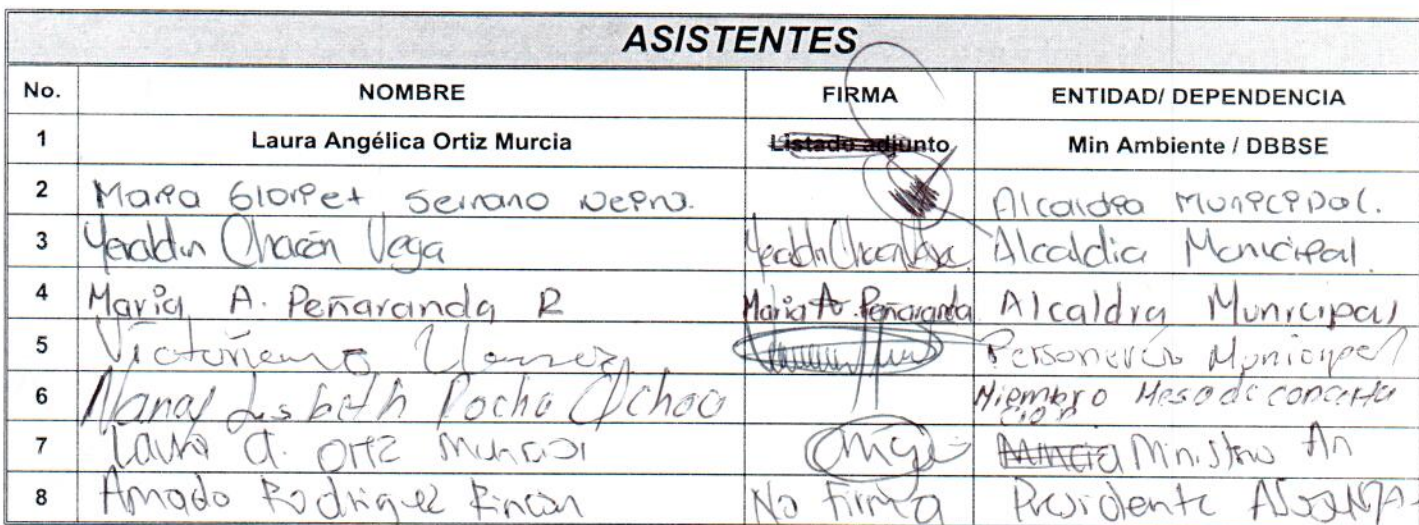 ASISTENTES
No. NOMBRE FIRMA ENTIDAD/ DEPENDENCIA
1 Laura Angélica Ortiz Murcia Listado adjunto Min Ambiente / DBBSE
2 Maria Gloriet Serrano Alcaldia Municipal.
3 Yeraldin Chacón Vega Yeraldin Chacon Vega Alcaldia Municipal.
4 Maria A. Peñaranda R Maria A. Peñaranda Alcaldia Municipal
5 Personeria Municipal
6 Lisbeth Rocha Ochoa Miembro Mesa de concerta
cion
7 Laura A. Ortiz Murcia Ministrio Am
8 Amado Rodriguez Rincon No firma Presidente